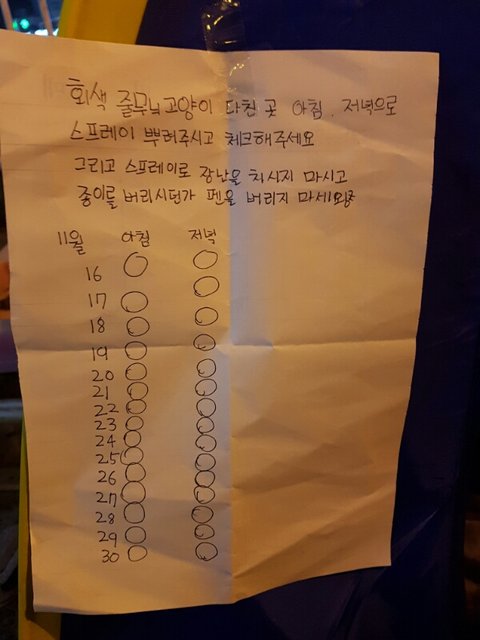 회색 줄무늬 고양이 다친 곳 아침. 저녁으로
스프레이 뿌려주시고 체크해주세요
그리고 스프레이로 장난을 치시지 마시고
종이를 버리시던가 펜을 버리지 마세요
11월 아침 저녁
16
17
18
19
20
21
22
23
24
25
26
27
28
29
30